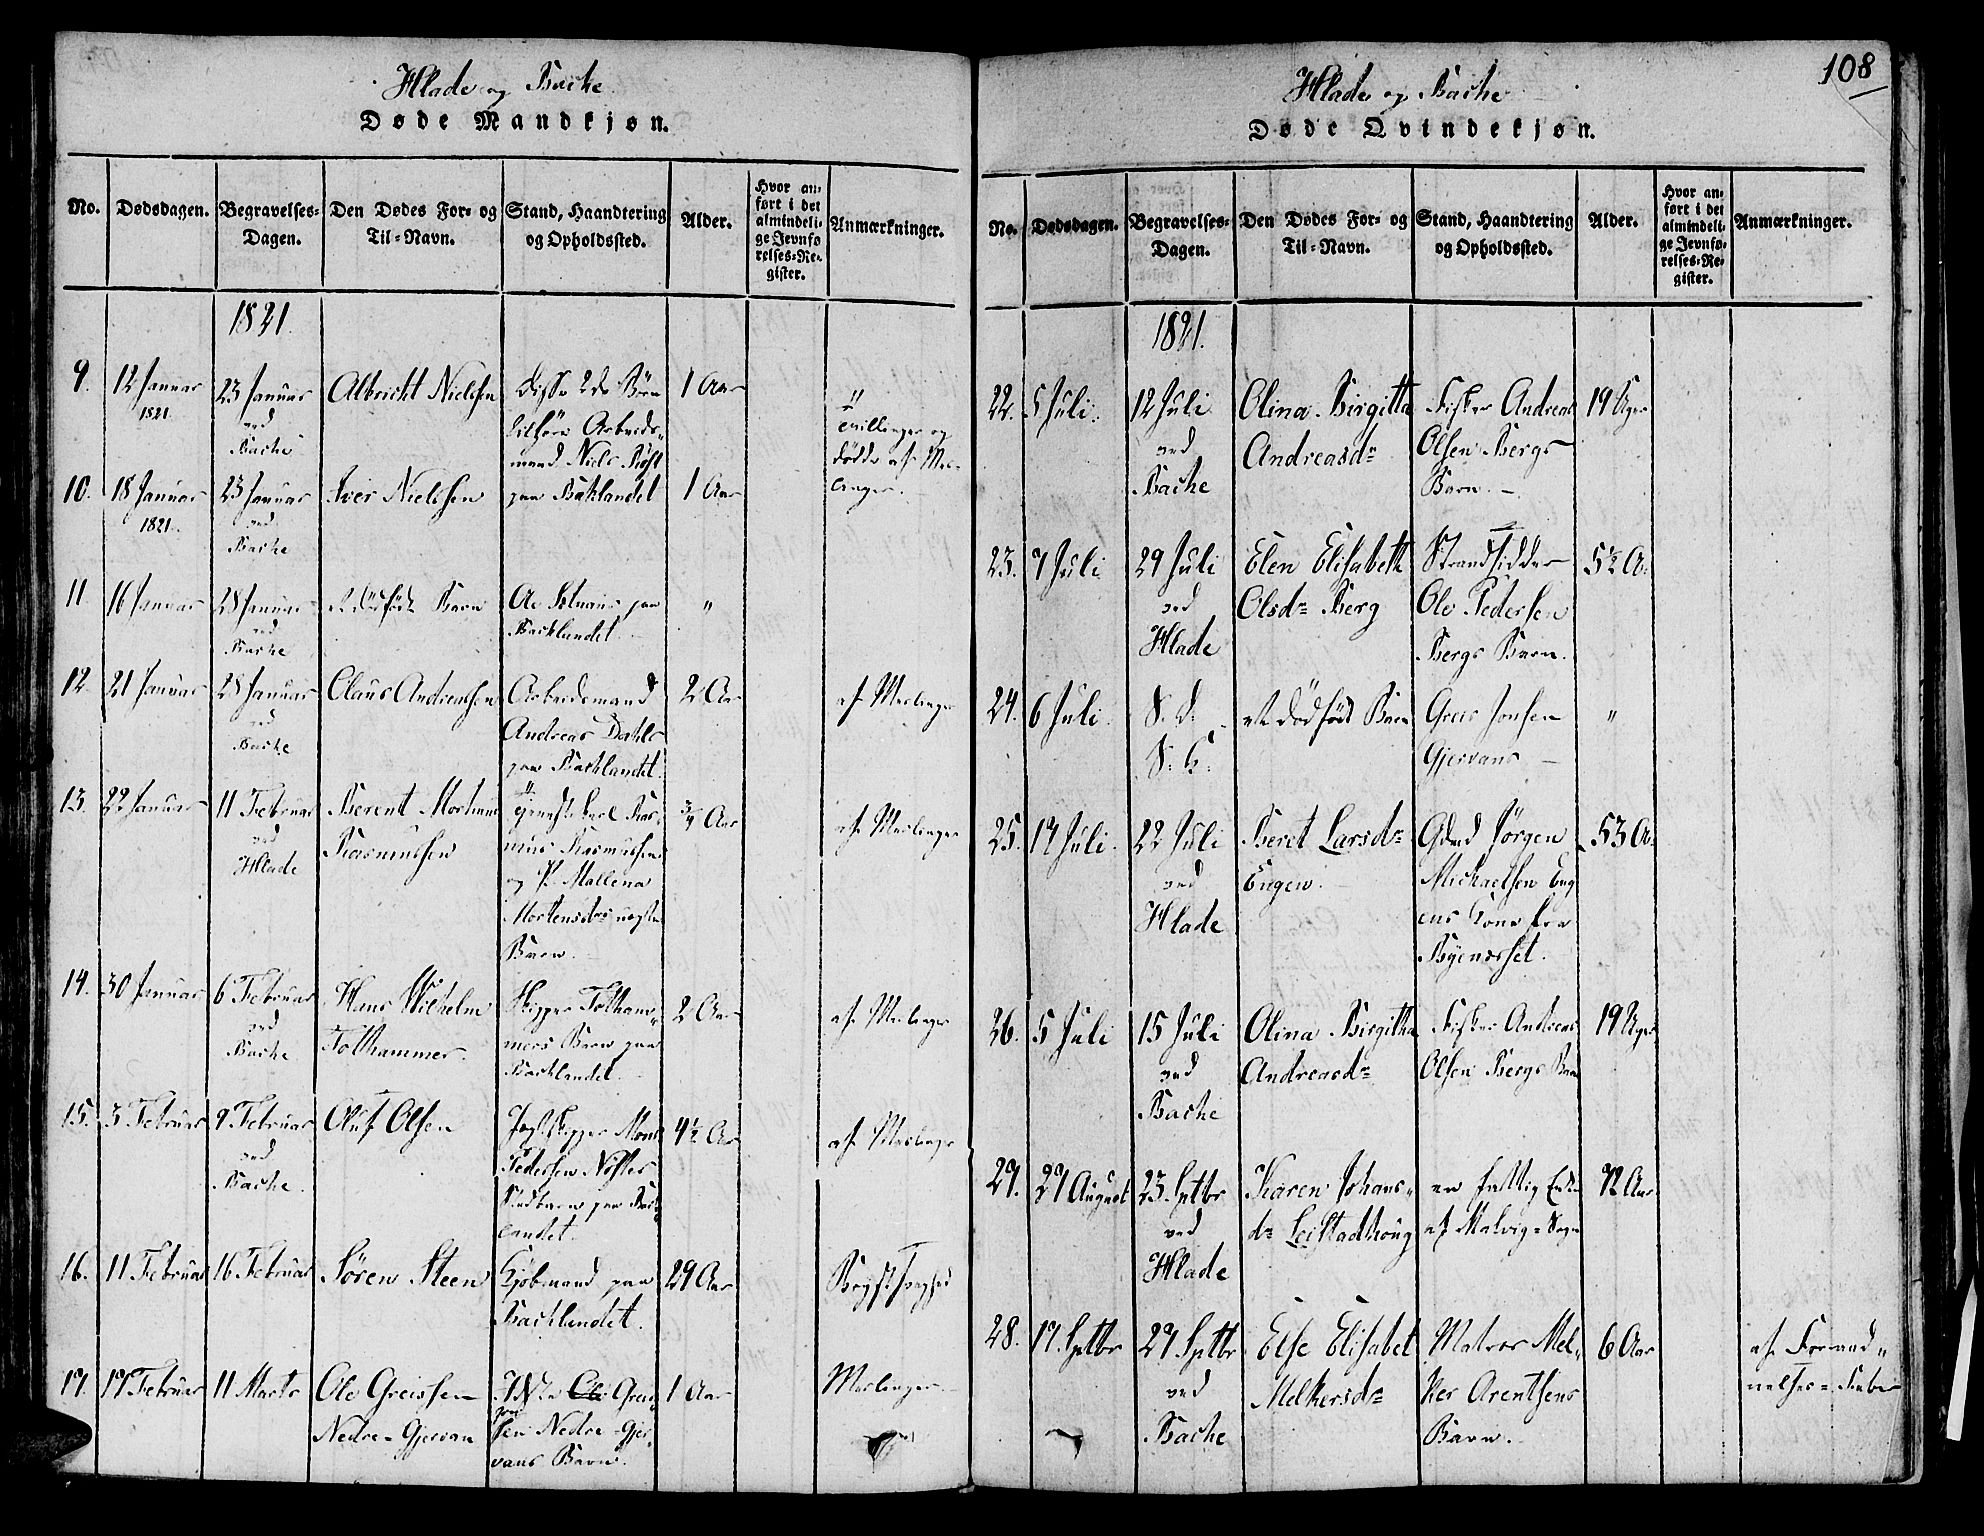 Hlade og Backe
Døde Mandkjøn.
No.
Dødsdagen.
Begravelses-
Dagen.
Den Dødes For- og
Til-Navn.
Stand, Haandtering
og Opholdssted.
Alder.
Hvor an-
ført i det
almindeli-
ge Jevnfø
relses-Re-
gister.
Anmærkninger.
1821.
9.
12 Januar
1821
23 Januar
ved
Bache
Albricht Nielsen
Disse 2de Børn
tilhøre Arbeids-
mand Niels
1 Aar
Tvillinger og
døde af Mes-
linger.
10.
18 Januar
1821.
23 Januar
ved
Bache
Iver Nielsen
paa Baklandet
1 Aar
11.
16 Januar
28 Januar
ved
Bache
et dødfødt Barn
paa
Backlandet.
"
12.
21 Januar
28 Januar
ved
Backe
Claus Andreassen
Arbeidsmand
Andreas Dahls
paa Backlandet.
2 Aar
af Meslinger
13.
22 Januar
11 Februar
ved
Hlade
Berent Morthinus
Rasmussen
Tjenestekarl Ras-
mus Rasmussen
og P. Mallena
Mortensdrs uægte
Barn.
3/4 Aar
af Meslinger
14.
30 Januar
6 Februar
ved
Bache
Hans Wilhelm
Folhammer.
Skipper Folham-
mers Barn paa
Backlandet.
2 Aar
af Meslinger
15.
3 Februar
9 Februar
ved
Bache.
Oluf Olsen
Jagtskipper
Pedersen
paa Bac-
landet.
4½ Aar
af Meslinger
16.
11 Februar
16 Februar
Søren Steen
Kjøbmand paa
Backlandet.
29 Aar
Brystsyghed
17.
17 Februar
11 Marts
Ole Greissen
Nedre-Gjervan
Greis
Jon
sen Nedre-Gjer-
vans Barn.
1 Aar
Meslinger.
108
Hlade og Bache
Døde Qvindekjøn.
No.
Dødsdagen.
Begravelses-
Dagen.
Den Dødes For- og
Til-Navn.
Stand, Haandtering
og Opholdssted.
Alder.
Hvor an-
ført i det
almindeli-
ge Jevnfø-
relses-Re-
gister.
Anmærkninger.
1821.
22.
5 Juli.
12 Juli
ved
Bache
Olina Birgitta
Andreasdr
Fisker Andreas
Olsen Bergs
Barn.
19 Uger
23.
7 Juli
29 Juli
ved
Hlade
Elen Elisabeth
Olsdr Berg
Strandsidder
Ole Pedersen
Bergs Barn.
5½ A.
24.
6 Juli.
S. d.
S. K.
et dødfødt Barn
Greis Jonsen
Gjervans
"
25.
17 Juli.
22 Juli
ved
Hlade
Beret Larsdr
Engen.
Gdmd Jörgen
Michaelsen Eng
ens Kone fra
Byenæsset.
53 A.
26.
5 Juli
15 Juli
ved
Bache
Olina Birgitha
Andreasdr
Fisker Andreas
Olsen Bergs Barn
19 Uger
27.
27 August
23. Septbr
ved
Hlade
Karen Johans-
dr Leistadhoug
en fattig Enke
af Malvig-Sogn
72 Aar
28.
17. Septbr
27 Septbr
ved
Bache
Else Elisabet
Melkersdr
Matros Mel-
ker Arentsens
Barn.
6 Aar
af Forraad-
nelses-Feber